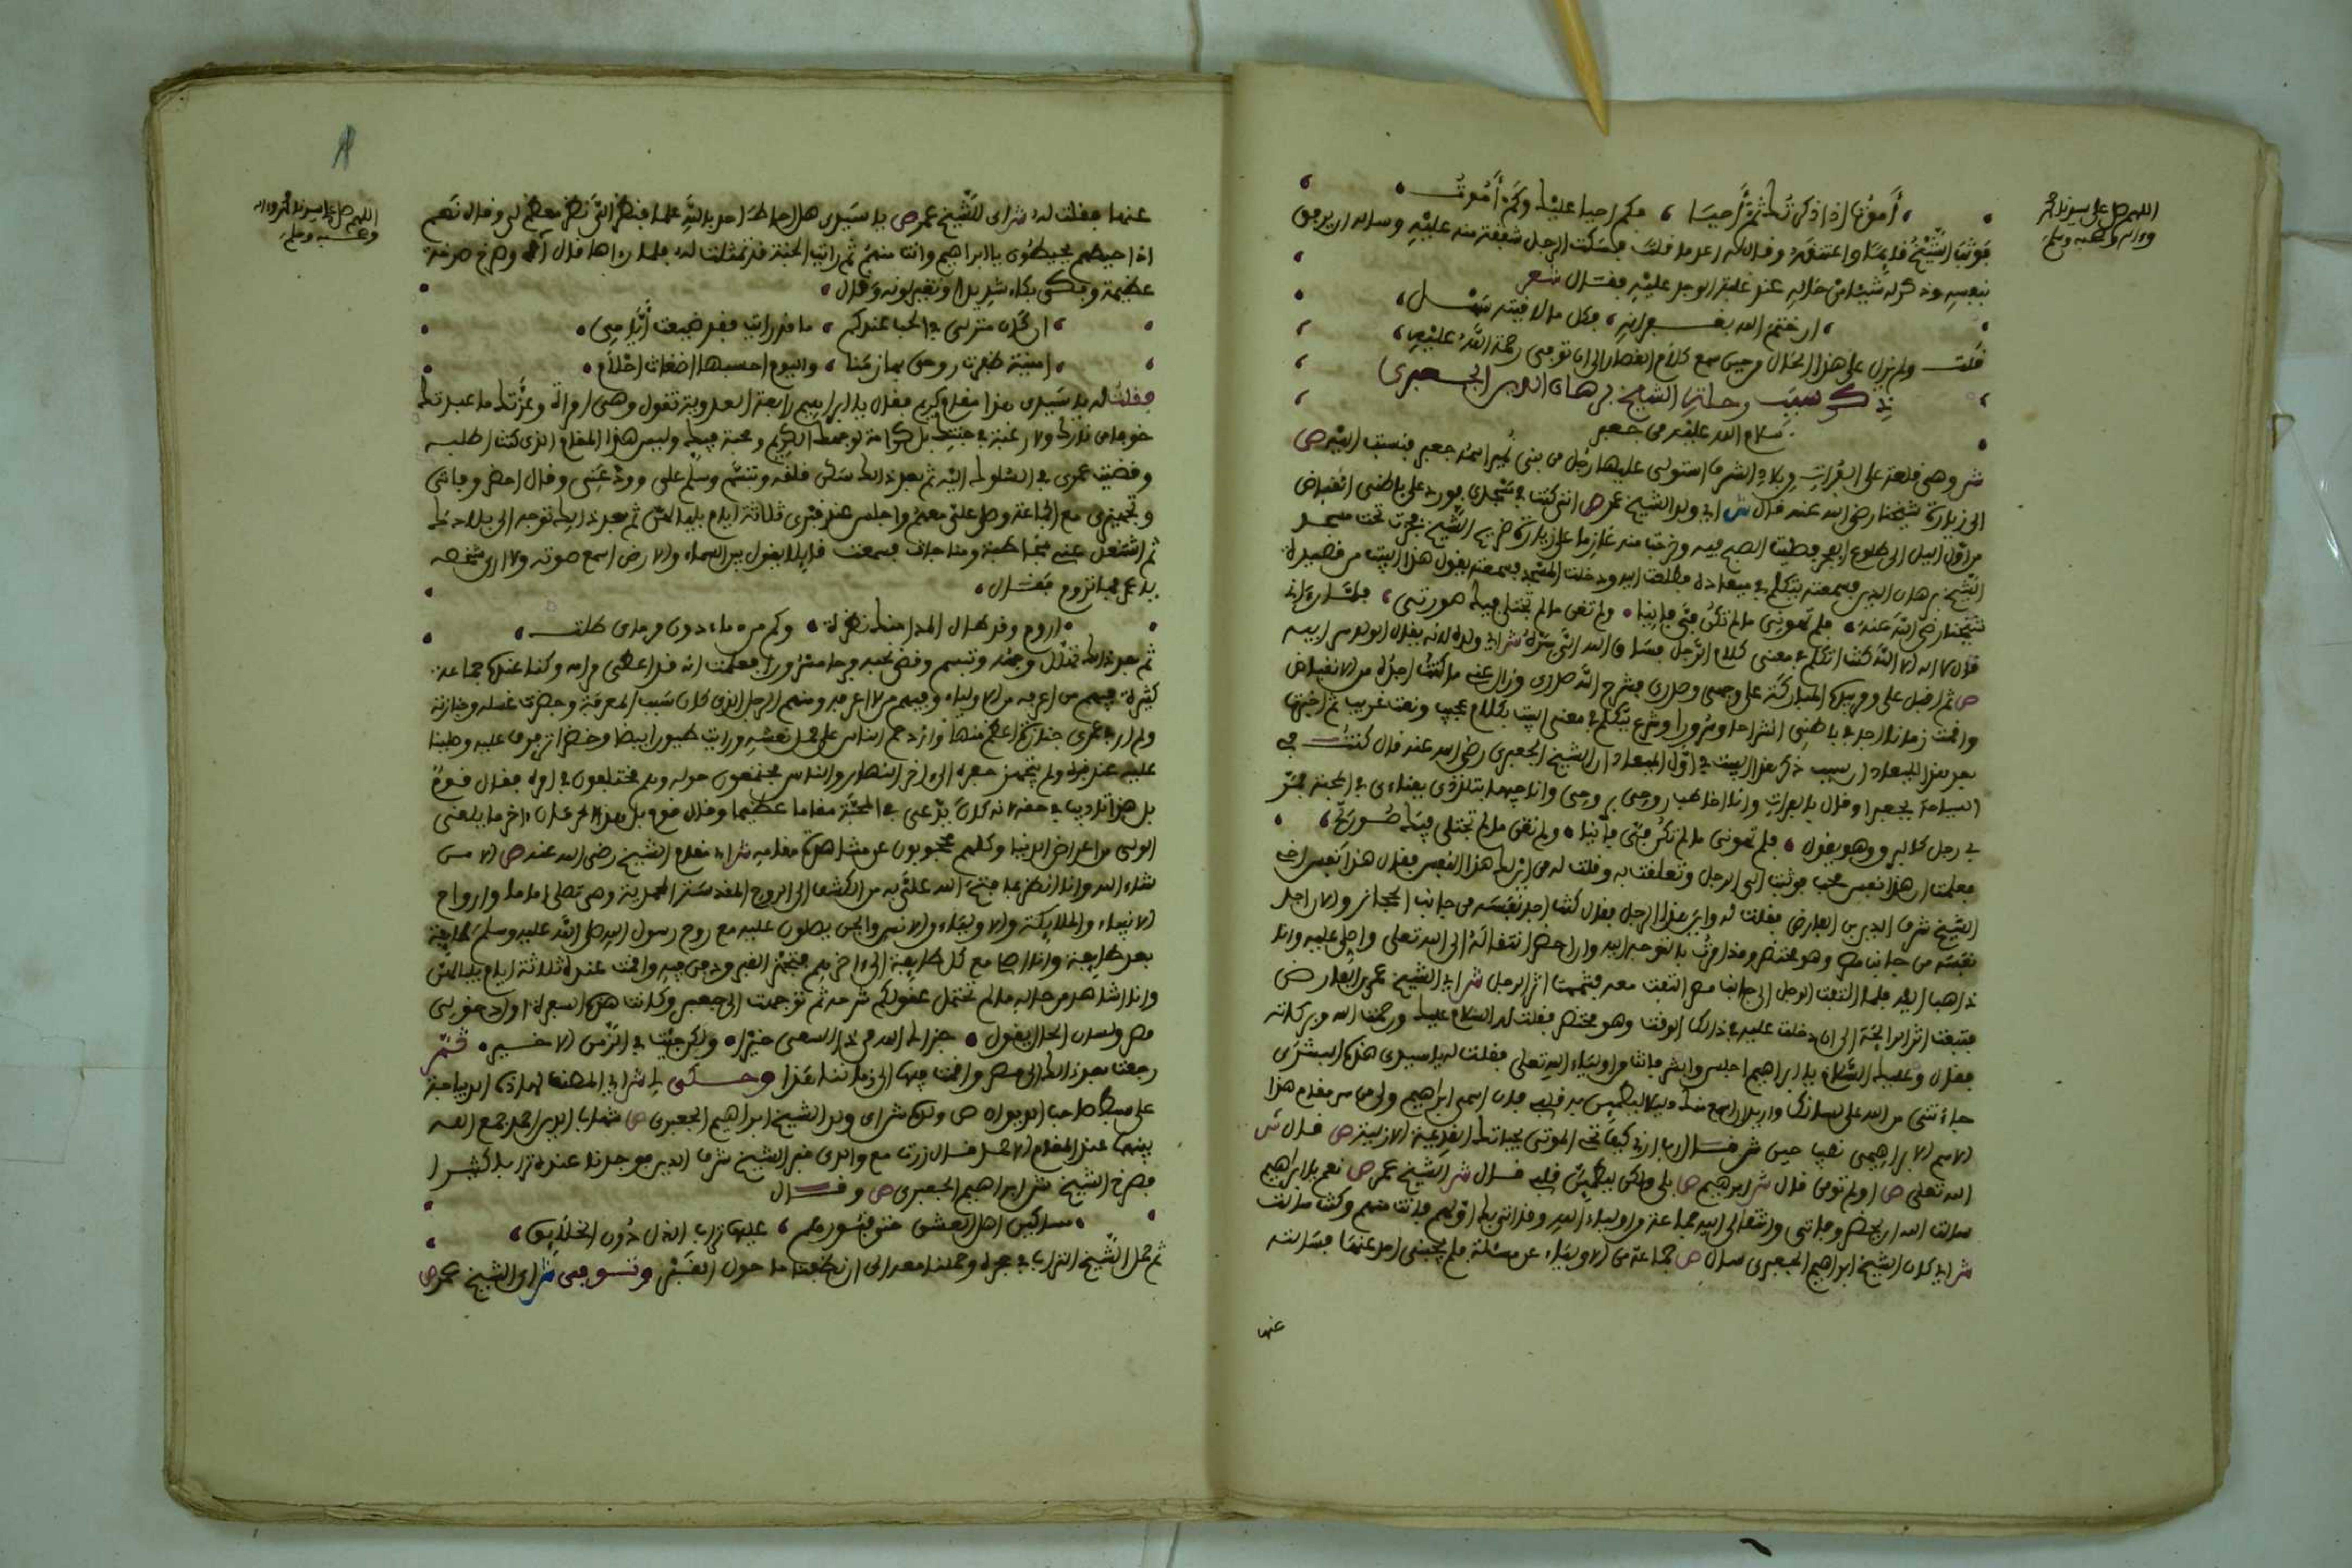 اللهم صل على سيدنا محمد
وءاله وصحبه وسلم
أموت إذا ذكرتك ثم أحيا ، فكم أحيا عليك وكم أموت
فوثب الشيخ قايما واعتنقه وقال له اعد ما قلت فسكت الرجل شفقة منه عليه وساله ان يرفق
بنفسه وذكر له شيئا من حاله عند غلبة الوجد عليه فقال شعر
ان ختم الله بغفرانه ، فكل ما لاقيته سهل
قلت ولم يزل على هذا الحال من حين سمع كلام القصار الى ان توفى رحمة الله عليه
ذكر سبب رحلة الشيخ برهان الدين الجعبرى
سلام الله عليه من جعبر
وهى قلعة على الفرات وبلاد الشرق استولى عليها رجل من بنى نمير اسمه جعبر فنسبت اليه ص
الى زيارة شيخنا رضى الله عنه قال ش اى ولد الشيخ عمر ص انى كنت فى مسجدى فورد على باطنى انقباض
من اول الليل الى طلوع الفجر وصليت الصبح فيه وخرجت منه عازما على زيارة ضريح الشيخ فمررت تحت مسجد
الشيخ برهان الدين فسمعته يتكلم فى ميعاده فطلعت اليه ودخلت المسجد فسمعته يقول هذا البيت من قصيدة
شيخنا رضى الله عنه ، فلم تهونى ما لم تكن فى فانيا ، ولم تفن ما لم تجتلى فيك صورتى ، فلما رءانى
قال لا اله الا الله كنت اتكلم فى معنى كلام الرجل فساق الله الى سره ش اى ولده لانه يقال الولد سر ابيه
ص ثم اقبل على ومر يده المباركة على وجهى وصدرى فشرح الله صدرى وزال عنى ما كنت اجده من الانقباض
واقمت زمانا اجد فى باطنى انشراحا وسرورا وشرع يتكلم فى معنى البيت بكلام عجيب ونعت غريب ثم اخبرنا
بعد هذا الميعاد ان سبب ذكر هذا البيت فى اول الميعاد ان الشيخ الجعبرى رضى الله عنه قال كنت فى
السياحة بجعبر او قال بالفرات وانا اخاطب روحى بروحى واناجيها بتلذذى بفناءى فى المحبة فمر
بى رجل كالبرق وهو يقول ، فلم تهونى ما لم تكن فى فانيا ، ولم تفن ما لم تجتلى فيك صورتى ،
فعلمت ان هذا نفس محب فوثبت الى الرجل وتعلقت به وقلت له من اين لك هذا النفس فقال هذا نفس اخى
الشيخ شرف الدين بن الفارض فقلت له واين هذا الرجل فقال كنت اجد نفسه من جانب الحجاز والان اجد
نفسه من جانب مصر وهو محتضر وقد امرت بالتوجه اليه وان احضر انتقاله الى الله تعالى واصلى عليه وانا
ذاهب اليه فلما التفت الرجل الى جانب مصر التفت معه فشممت اثر الرجل ش اى الشيخ عمر بن الفارض
فتبعت اثر الرايحة الى ان دخلت عليه فى ذلك الوقت وهو محتضر فقلت له السلام عليك ورحمت الله وبركاته
فقال وعليك السلام يا ابراهيم اجلس وابشر فانت من اولياء الله تعالى فقلت له يا سيدى هذه البشرى
جاءتنى من الله على لسانك واريد ان اسمع منك دليلا ليطمئن به قلبى فان اسمى ابراهيم ولى من سر مقام هذا
الاسم الابراهيمى نصيب حين ش قال رب ارنى كيف تحى الموتى ص قال ش
الله تعالى ص اولم تومن قال ش ابراهيم ص بلى ولكن ليطمئن قلبى قال ش الشيخ عمر ص نعم يا ابراهيم
سالت الله ان يحضر وفاتى وانتقالى اليه جماعة من اولياء الله وقد اتى بك اولهم فانت منهم وكنت سالت
ش اى كان الشيخ ابراهيم الجعبرى سال ص جماعة من الاولياء عن مسئلة فلم يجبنى احد عنها فسالته
عنها
اللهم صل على سيدنا محمد وءاله
وصحبه وسلم
عنها فقلت له ش اى للشيخ عمر ص يا سيدى هل احاط احد بالله علما فنظر الى نظر معظم لى وقال نعم
اذا حيطهم يحيطون يا ابراهيم وانت منهم ثم رايت الجنة قد تمثلت له فلما رءاها قال آه وصرخ صرخة
عظيمة وبكى بكاء شديدا وتغير لونه وقال ،
ان كان منزلتى فى الحب عندكم ، ما قد رايت فقد ضيعت أيامى ،
امنية ظفرت روحى بها زمنا ، واليوم احسبها اضغاث احلام ،
فقلت له يا سيدى هذا مقام كريم فقال يا ابراهيم رابعة العدوية تقول وهى امراة وعزتك ما عبدتك
خوفا من نارك ولا رغبة فى جنتك بل كرامة لوجهك الكريم ومحبة فيك وليس هذا المقام الذى كنت اطلبه
وقضيت عمرى فى السلوك اليه ثم بعد ذلك سكن قلقه وتبسم وسلم على وودعنى وقال احضر وفاتى
وتجهيزى مع الجماعة وصل على معهم واجلس عند قبرى ثلاثة ايام بلياليهن ثم بعد ذلك توجه الى بلادك
ثم اشتغل عنى بمخاطبة ومناجات فسمعت قايلا يقول بين السماء والارض اسمع صوته ولا ارى شخصه
يا عمر فما تروم فقال ،
اروم وقد طال المدا منك نظرة ، وكم من دماء دون مرماى طلت ،
ثم بعد ذلك تهلل وجهه وتبسم وقضى نحبه فرحا مسرورا فعلمت انه قد اعطى مرامه وكنا عنده جماعة
كثيرة فيهم من اعرفه من الاولياء وفيهم من لا اعرفه ومنهم الرجل الذى كان سبب المعرفة وحضرت غسله وجنازته
ولم ار فى عمرى جنازة اعظم منها وازدحم الناس على حمل نعشه ورايت طيورا بيضا وخضرا ترفرف عليه وصلينا
عليه عند قبره ولم يتجهز حفره الى ءاخر النهار والناس مجتمعون حوله وهم مختلفون فى امره فقال قوم
بل هذا تاديب فى حقه لانه كان يدعى فى المحبة مقاما عظيما وقال قوم بل هذا ءاخر ما يلقى
الولى من اعراض الدنيا وكلهم محجوبون عن مشاهدة مقامه ش اى مقام الشيخ رضى الله عنه ص الا من
شاء الله وانا انظر بما فتح الله على به من الكشف الى الروح المقدسة المحمدية وهى تصلى اماما وارواح
الانبياء والملايكة والاولياء والانس والجن يصلون عليه مع روح رسول الله صلى الله عليه وسلم طايفة
بعد طايفة وانا اصلى مع كل طايفة الى ءاخرهم فتجهز القبر ودفن فيه واقمت عنده ثلاثة ايام بلياليهن
وانا اشاهد من حاله ما لم تحتمل عقولكم شرحه ثم توجهت الى جعبر وكانت هذه السفرة اول دخولى
مصر ولسان الحال يقول ، جزاك الله عن ذا السعى خيرا ، ولكن جئت فى الزمن الاخير ، ثم
رجعت بعد ذلك الى مصر واقمت فيها الى زماننا هذا وحكى لى
ولد الشيخ ابراهيم الجعبرى ص شهاب الدين احمد جمع الله
بينهما عند المقام قال زرت مع والدى قبر الشيخ شرف الدين فوجدنا عنده ترابا كثيرا
فصرخ الشيخ ش ابراهيم الجعبرى ص وقال
مساكين اهل العشق حتى قبورهم ، عليها تراب الذل دون الخلائق ،
ثم حمل الشيخ التراب فى حجره وحملنا معه الى ان نظفنا ما حول القبر وتوفى ش اى الشيخ عمر ص